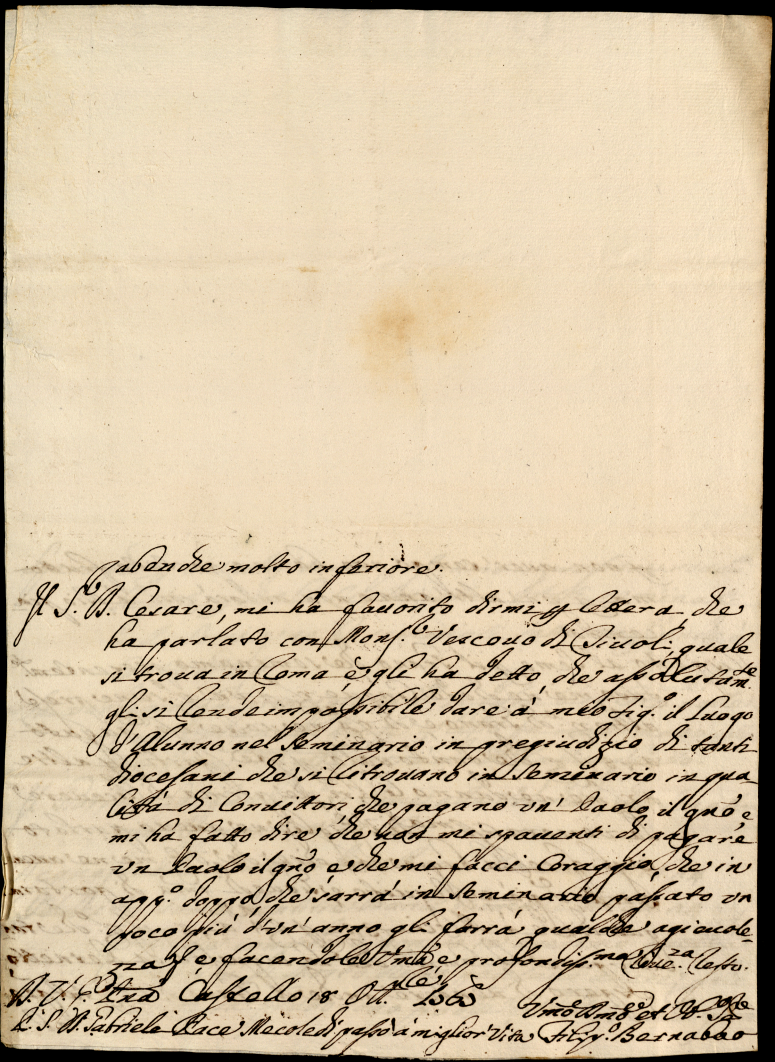 abenche molto inferiore.
Il S.r D. Cesare, mi ha fauorito dirmi p lettera, che
ha parlato con Mons.r Vescouo di Tiuoli, quale
si troua in Roma, e gli ha detto, che assolutam.te
gli si rende impossibile dare à mio Fig.o il Luogo
d'Alunno nel Seminario in pregiudizio di tanti
diocesani che si ritrouano in Seminario in qua
lità di Conuittori, che pagano un' Paolo il gño, e
mi ha fatto dire, che non mi spauenti di pagare
un Paolo il gño, e che mi facci Coraggio, che in
app.o doppo, che sarrà in Seminario passato un
poco più d'un' anno gli farrà qualche ageuole-
za, e facendole Vmã e profondiss.ma Reue.za resto.
D. V. S. Castello 18 Ott.
D. S. D. Gabriele Pace Mecoledi passò à miglior Vita Filip.o Bernabeo